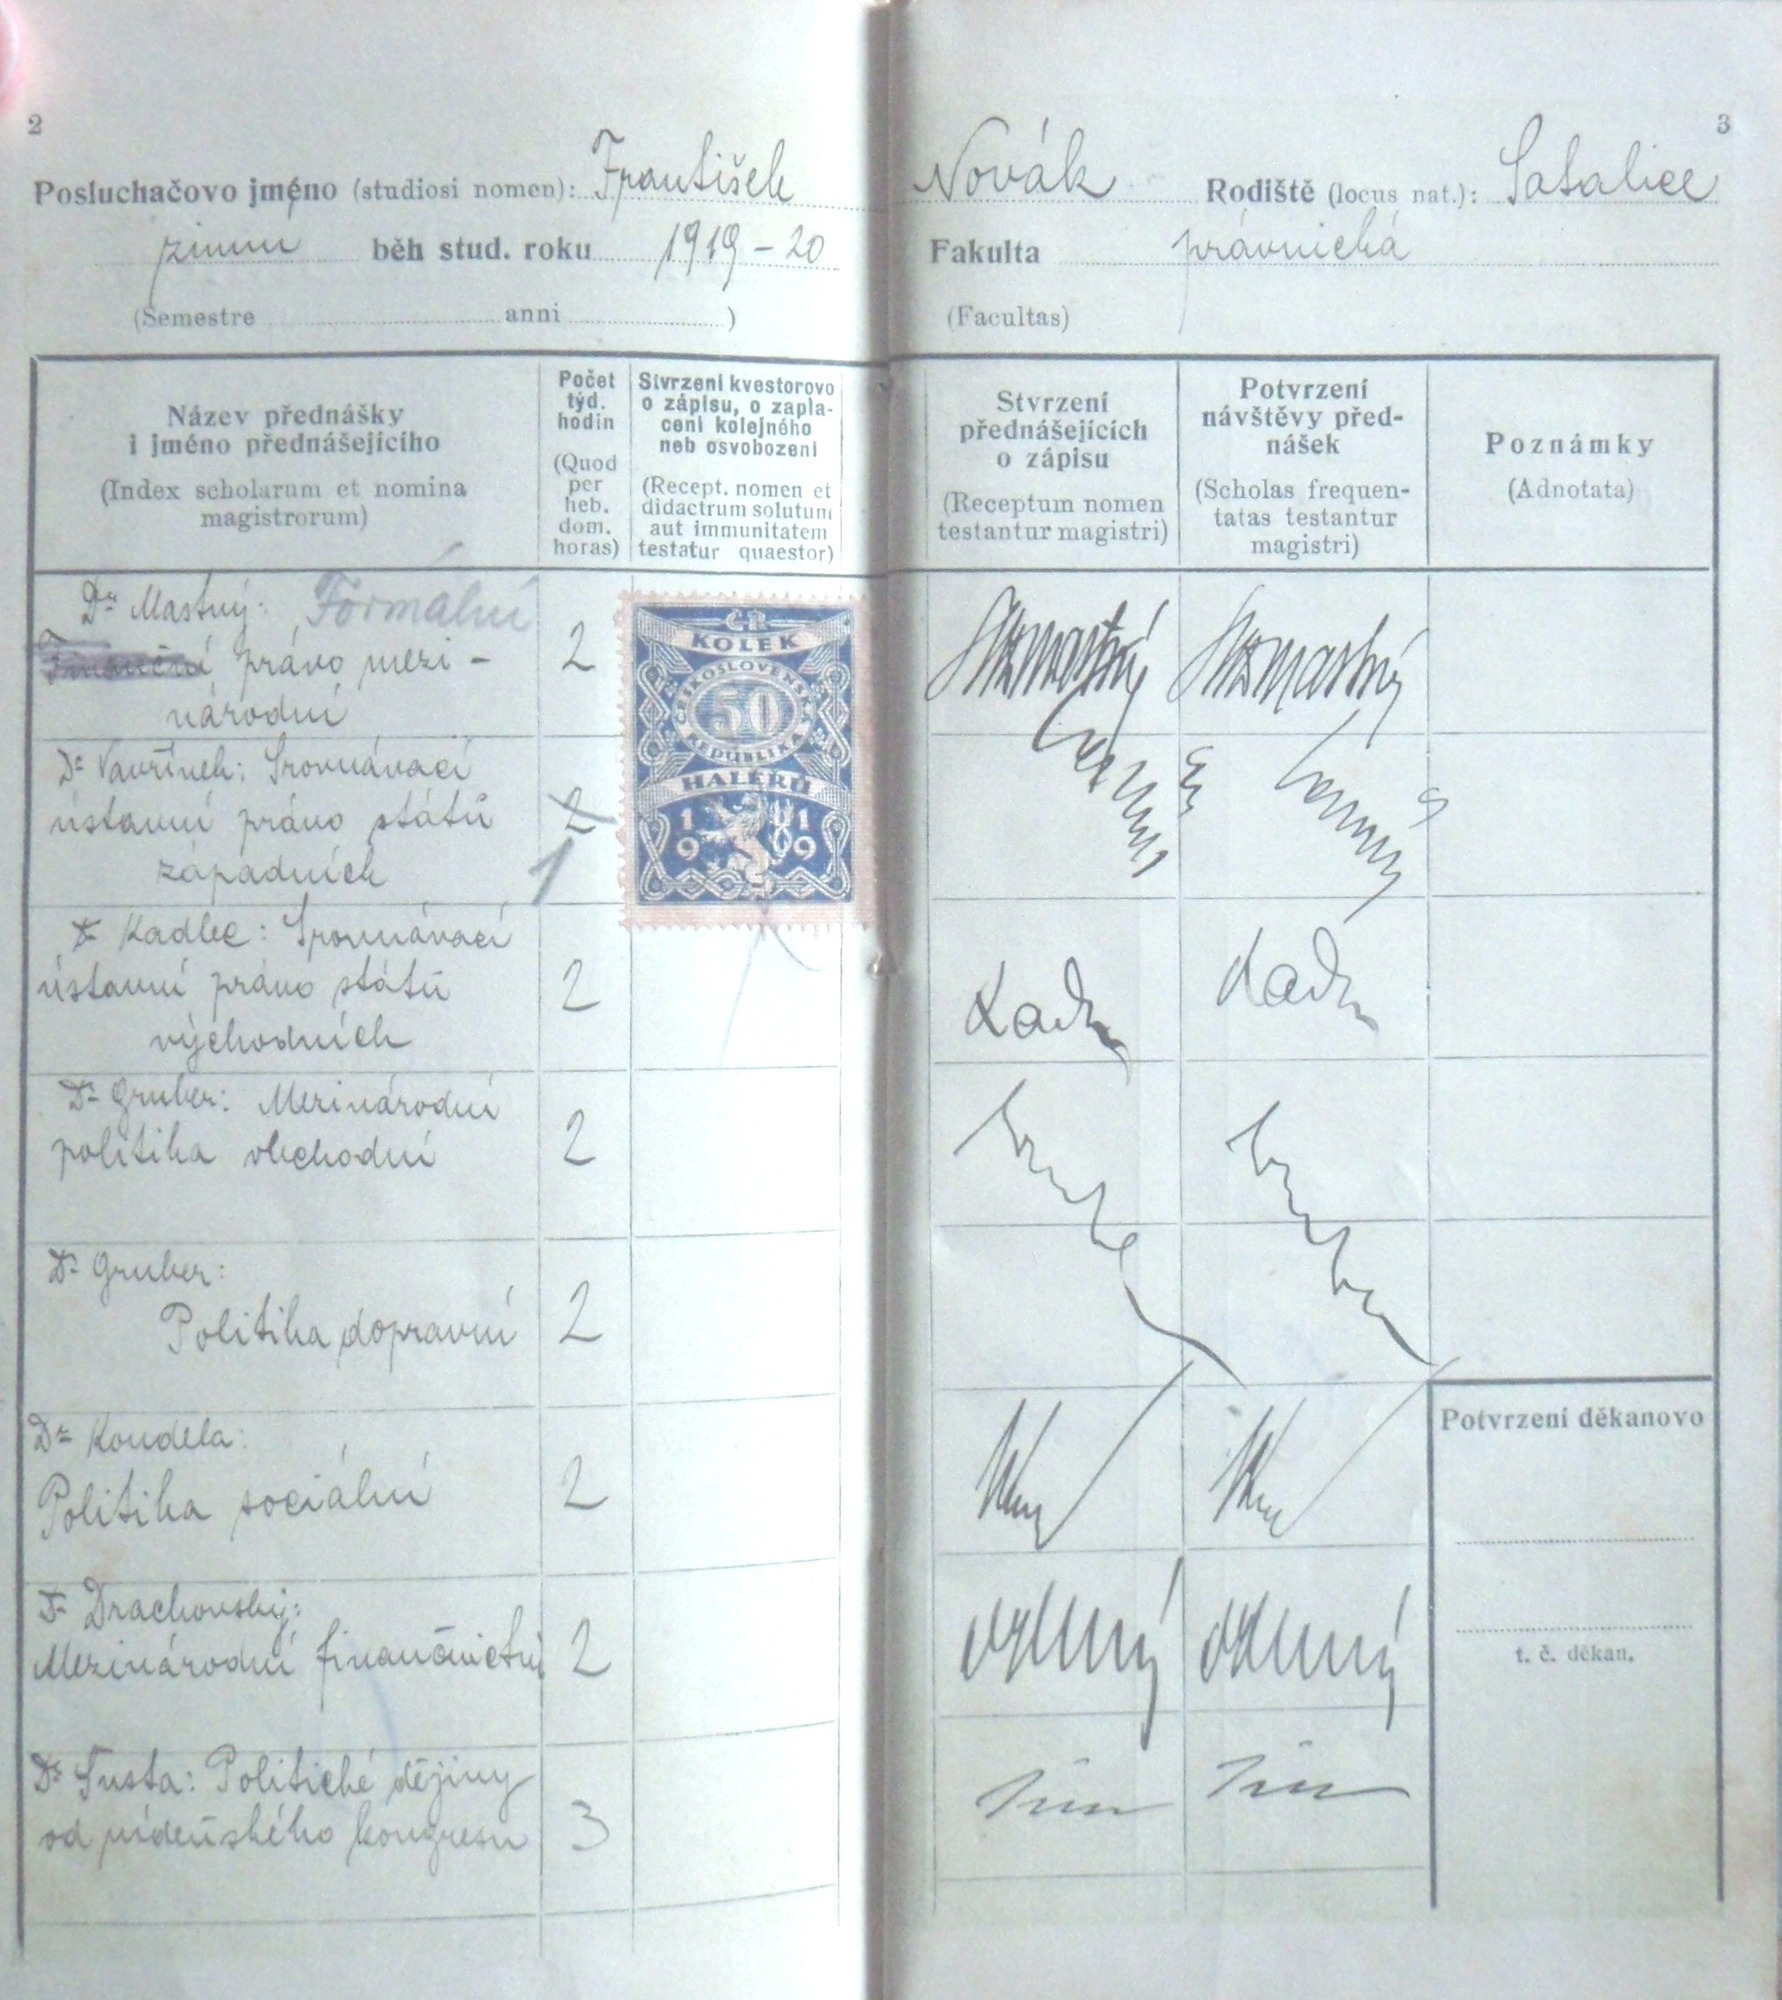 2
3
Posluchačovo jméno (studiosi nomen): František Novák Rodiště (locus nat.): Satalice
zimní běh stud. roku 1919-20 Fakulta právnická
(Semestre anni ) (Facultas)
Název přednášky
i jméno přednášejícího
(Index scholarum et nomina
magistrorum)
Počet
týd.
hodin
(Quod
per
heb.
dom.
horas)
Stvrzení kvestorovo
o zápisu, o zapla-
cení kolejného
neb osvobození
(Recept. nomen et
didactrum solutum
aut immunitatem
testatur quaestor)
Stvrzení
přednášejících
o zápisu
(Receptum nomen
testantur magistri)
Potvrzení
návštěvy před-
nášek
(Scholas frequen-
tatas testantur
magistri)
Poznámky
(Adnotata)
Dr Mastný: Formální
Finanční právo mezi-
národní
2
KOLEK
ČESKOSLOVENSKÁ
50
REPUBLIKA
HALÉŘŮ
1919
Dr Vavřínek: Srovnávací
ústavní právo států
západních
2
1
Dr Kadlec: Srovnávací
ústavní právo států
východních
2
Dr Gruber: Mezinárodní
politika obchodní
2
Dr Gruber:
Politika dopravní
2
Dr Koudela:
Politika sociální
2
Dr Drachovský:
Mezinárodní finančnictví
2
Dr Šusta: Politické dějiny
od vídeňského kongresu
3
Potvrzení děkanovo
t. č. děkan.